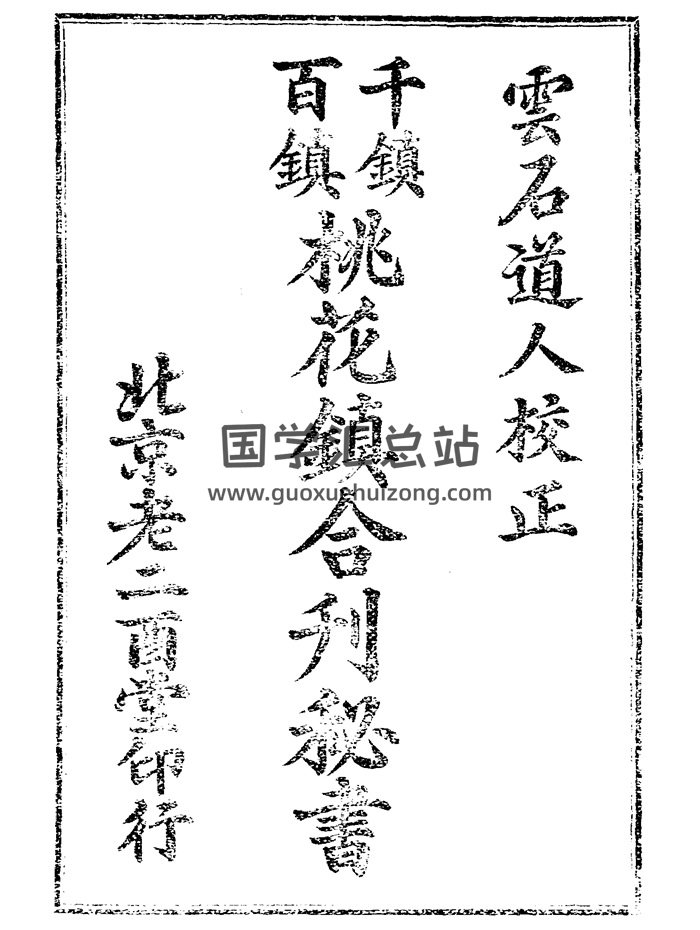 雲石道人校正
千鎮
百鎮
桃花鎮合刊秘書
北京老二酉堂印行
国学汇总站
www.guoxuehuizong.com